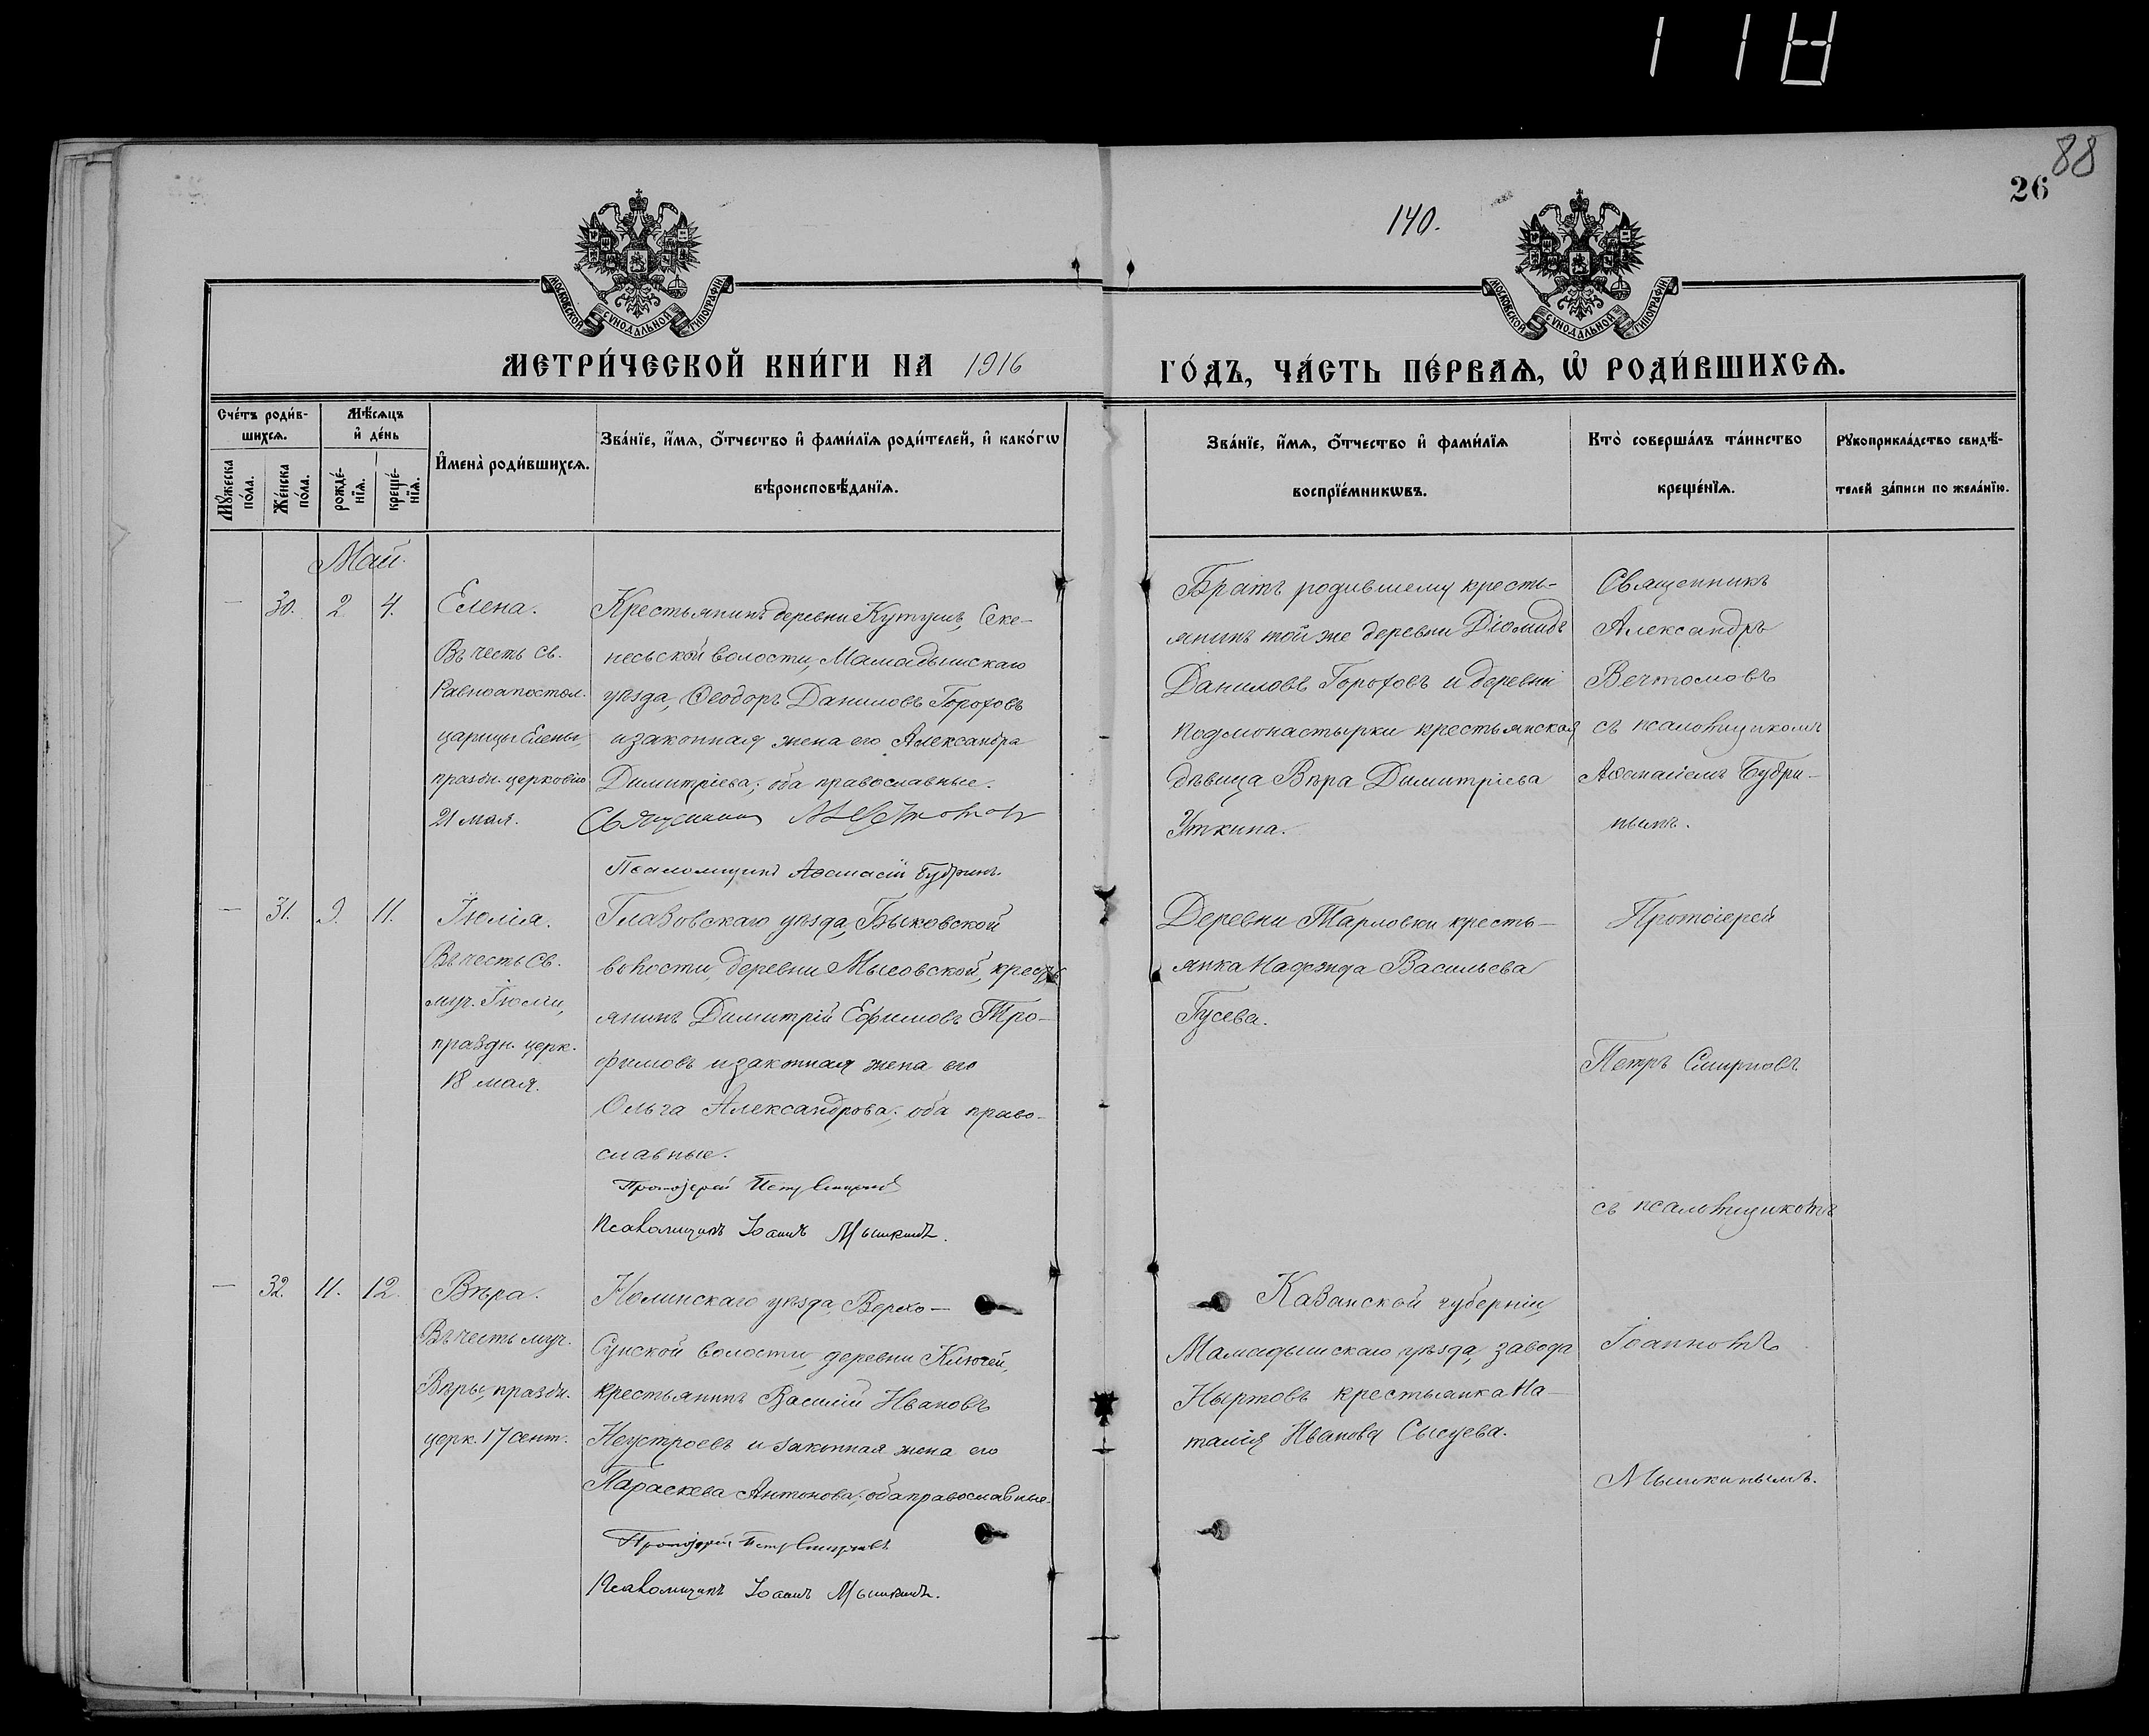 118
88
26
140.
МОСКОВСКОЙ СѴНОДАЛЬНОЙ ТИПОГРАФІИ
МОСКОВСКОЙ СѴНОДАЛЬНОЙ ТИПОГРАФІИ
МЕТРИ́ЧЕСКОЙ КНИ́ГИ НА 1916
ГО́ДЪ, ЧА́СТЬ ПЕ́РВАѦ, Ѡ҆ РОДИ́ВШИХСѦ.
Сче́тъ роди́в-
шихсѧ.
Мꙋ́жеска
по́ла.
Же́нска
по́ла.
Мѣ́сѧцъ
и҆ де́нь
рожде́-
нїѧ.
креще́-
нїѧ.
И҆мена̀ роди́вшихсѧ.
Зва́нїе, и҆́мѧ, о҆́тчество и҆ фами́лїѧ роди́телей, и҆ како́гѡ
вѣроисповѣ́данїѧ.
Зва́нїе, и҆́мѧ, о҆́тчество и҆ фами́лїѧ
воспрїе́мникѡвъ.
Кто̀ соверша́лъ та́инство
креще́нїѧ.
Рꙋкоприкла́дство свидѣ́-
телей за́писи по жела́нїю.
Май.
— 30. 2 4.
Елена.
Въ честь св.
Равноапостол.
царицы Елены,
праздн. церковію
21 мая.
Крестьянинъ деревни Кутумъ, Секе-
несьской волости, Мамадышскаго
уѣзда, Ѳеодоръ Даниловъ Гороховъ
и законная жена его Александра
Димитріева; оба православные.
Священникъ
Псаломщикъ Аѳанасій Бубринъ.
Братъ родившему кресть-
янинъ той же деревни Діомидъ
Даниловъ Гороховъ и деревни
Подмонастырки крестьянская
дѣвица Вѣра Димитріева
Уткина.
Священникъ
Александръ
Вечтомовъ
съ псаломщикомъ
Аѳанасіемъ Бубри-
нымъ.
— 31. 9. 11.
Іюлія.
Въ честь св.
муч. Іюліи,
праздн. церк.
18 мая.
Глазовскаго уѣзда, Быковской
волости, деревни Мысовской, кресть
янинъ Димитрій Ефимовъ Тро-
фимовъ и законная жена его
Ольга Александрова; оба право-
славные.
Протоіерей Петръ Смирновъ
Псаломщикъ Іоаннъ Мышкинъ.
Деревни Тарловки кресть-
янка Надежда Васильева
Гусева.
Протоіерей
Петръ Смирновъ
съ псаломщикомъ
Іоанномъ
Мышкинымъ.
— 32. 11. 12.
Вѣра.
Въ честь муч.
Вѣры, праздн.
церк. 17 сент.
Нолинскаго уѣзда, Верхо-
Сунской волости, деревни Ключей,
крестьянинъ Василій Ивановъ
Неустроевъ и законная жена его
Параскева Антонова; оба православные.
Протоіерей Петръ Смирновъ
Псаломщикъ Іоаннъ Мышкинъ.
Казанской губерніи,
Мамадышскаго уѣзда, завода
Ныртовъ крестьянка На-
талія Иванова Сысуева.